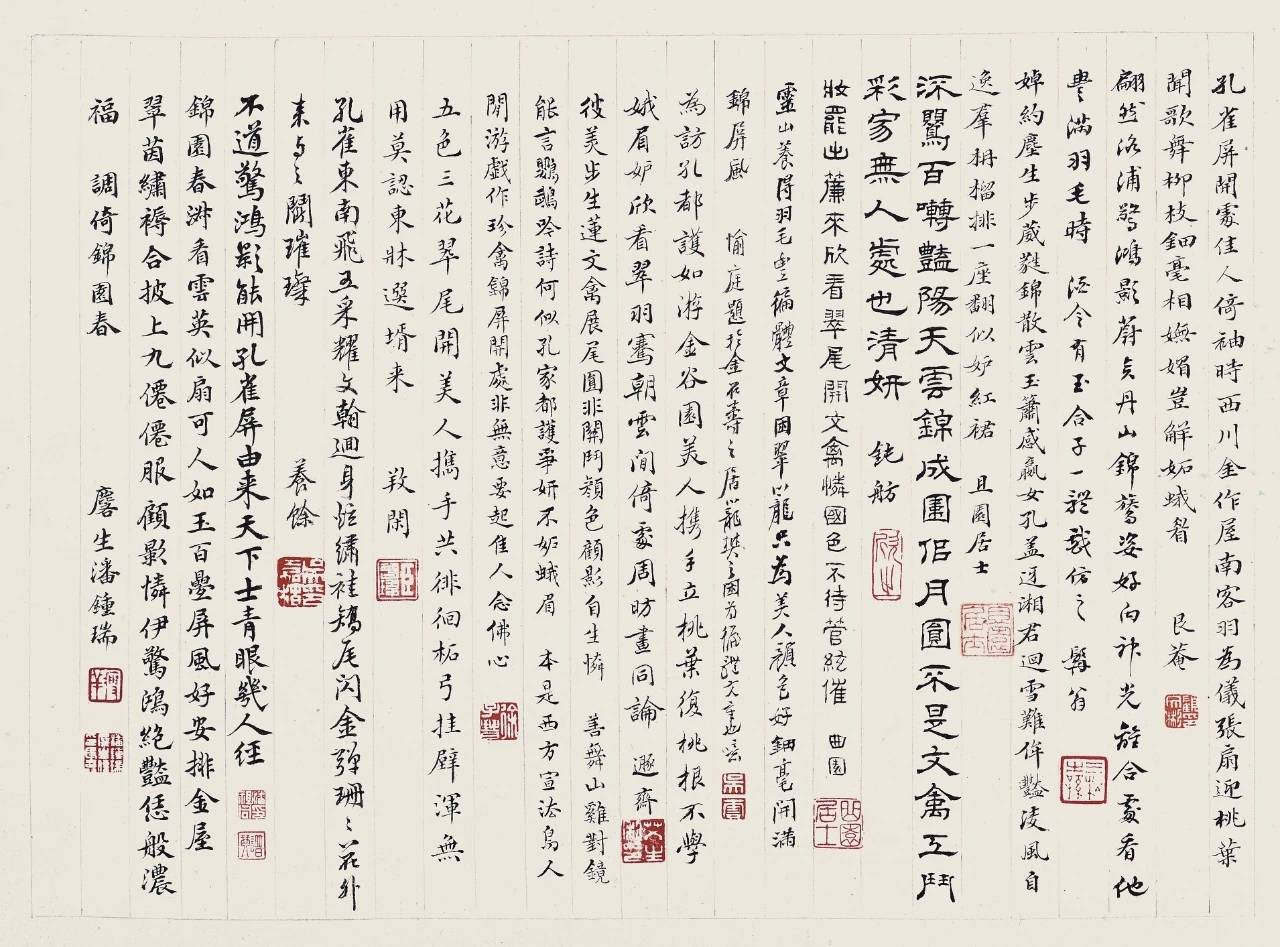 孔雀屏開處佳人倚袖時西川金作屋南客羽為儀張扇迎桃葉
聞歌舞柳枝鈿毫相嫵媚豈解妬蛾眉 艮菴
翩然洛浦驚鴻影蔚矣丹山錦鷟姿好向神光離合處看他
豐滿羽毛時 酒令有玉合子一謎戲仿之 鬅翁
婥約塵生步葳蕤錦散雲玉簫感嬴女孔蓋迓湘君迴雪難侔艷凌風自
逸羣栟櫚排一座翻似妒紅裙 且園居士
深闈百囀豔陽天雲錦成圍侶月圓不是文禽工鬥
彩家無人處也清妍 鈍舫
妝罷出簾來欣看翠尾開文禽憐國色不待管絃催 曲園
靈山養得羽毛豐徧體文章困翠籠只為美人顏色好鈿毫開滿
錦屏風 愉庭題於金石壽之居
為訪孔都護如游金谷園美人攜手立桃葉復桃根不學
娥眉妒欣看翠羽鶱朝雲閒倚處周昉畫同論 遯齋
彼美步生蓮文禽展尾圓非關鬥顏色顧影自生憐 善舞山雞對鏡
能言鸚鵡吟詩何似孔家都護爭妍不妬蛾眉 本是西方宣法鳥人
閒游戲作珍禽錦屏開處非無意要起佳人念佛心
五色三花翠尾開美人攜手共徘徊柘弓挂壁渾無
用莫認東牀選壻來 敤閑
孔雀東南飛五采耀文翰迴身炫繡袿鴙尾閃金彈珊珊花外
來與與鬭璀璨 養餘
不道驚鴻影能開孔雀屏由来天下士青眼幾人經
錦園春泮看雲英似扇可人如玉百疊屏風好安排金屋
翠茵繡褥合披上九僊僊服顧影憐伊驚鴻絕豔恁般濃
福 調倚錦園春 麐生潘鍾瑞